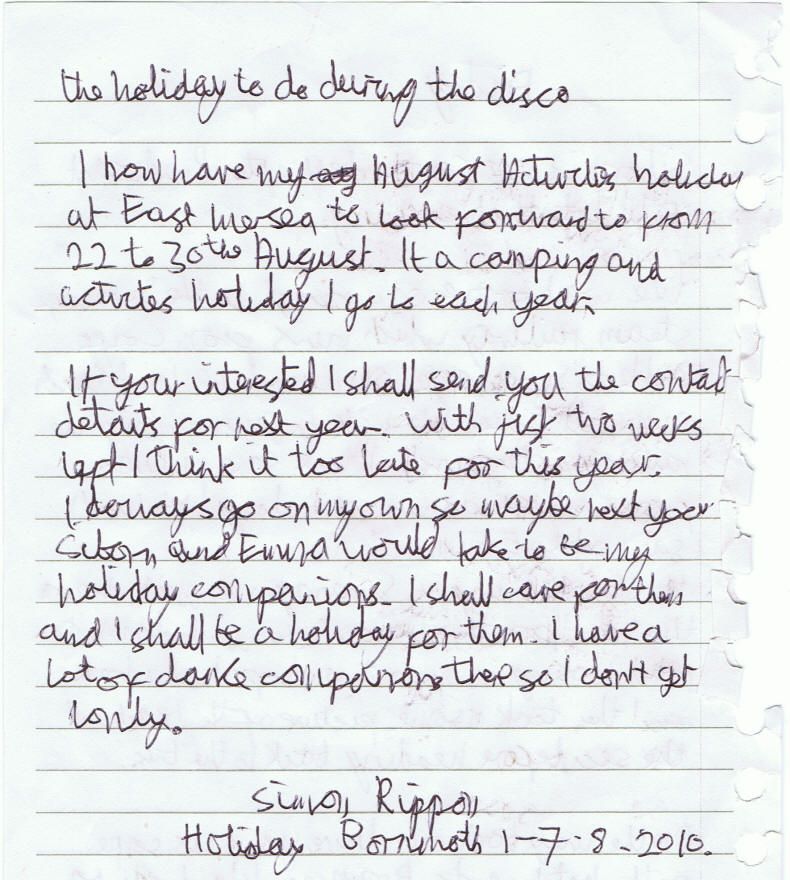 the holiday to do during the disco
I now have my August Activities holiday
at East Mersea to look forward to from
22 to 30th August. It a camping and
activites holiday I go to each year.
If your interested I shall send you the contact
details for next year. With just two weeks
left I think it too late for this year.
I always go on my own so maybe next year
and Emma would like to be my
holiday companions. I shall care for them
and I shall be a holiday for them. I have a
lot of companions there so I don't get
lonly.
Simon Rippon
Holiday Bornmoth 1-7-8-2010.